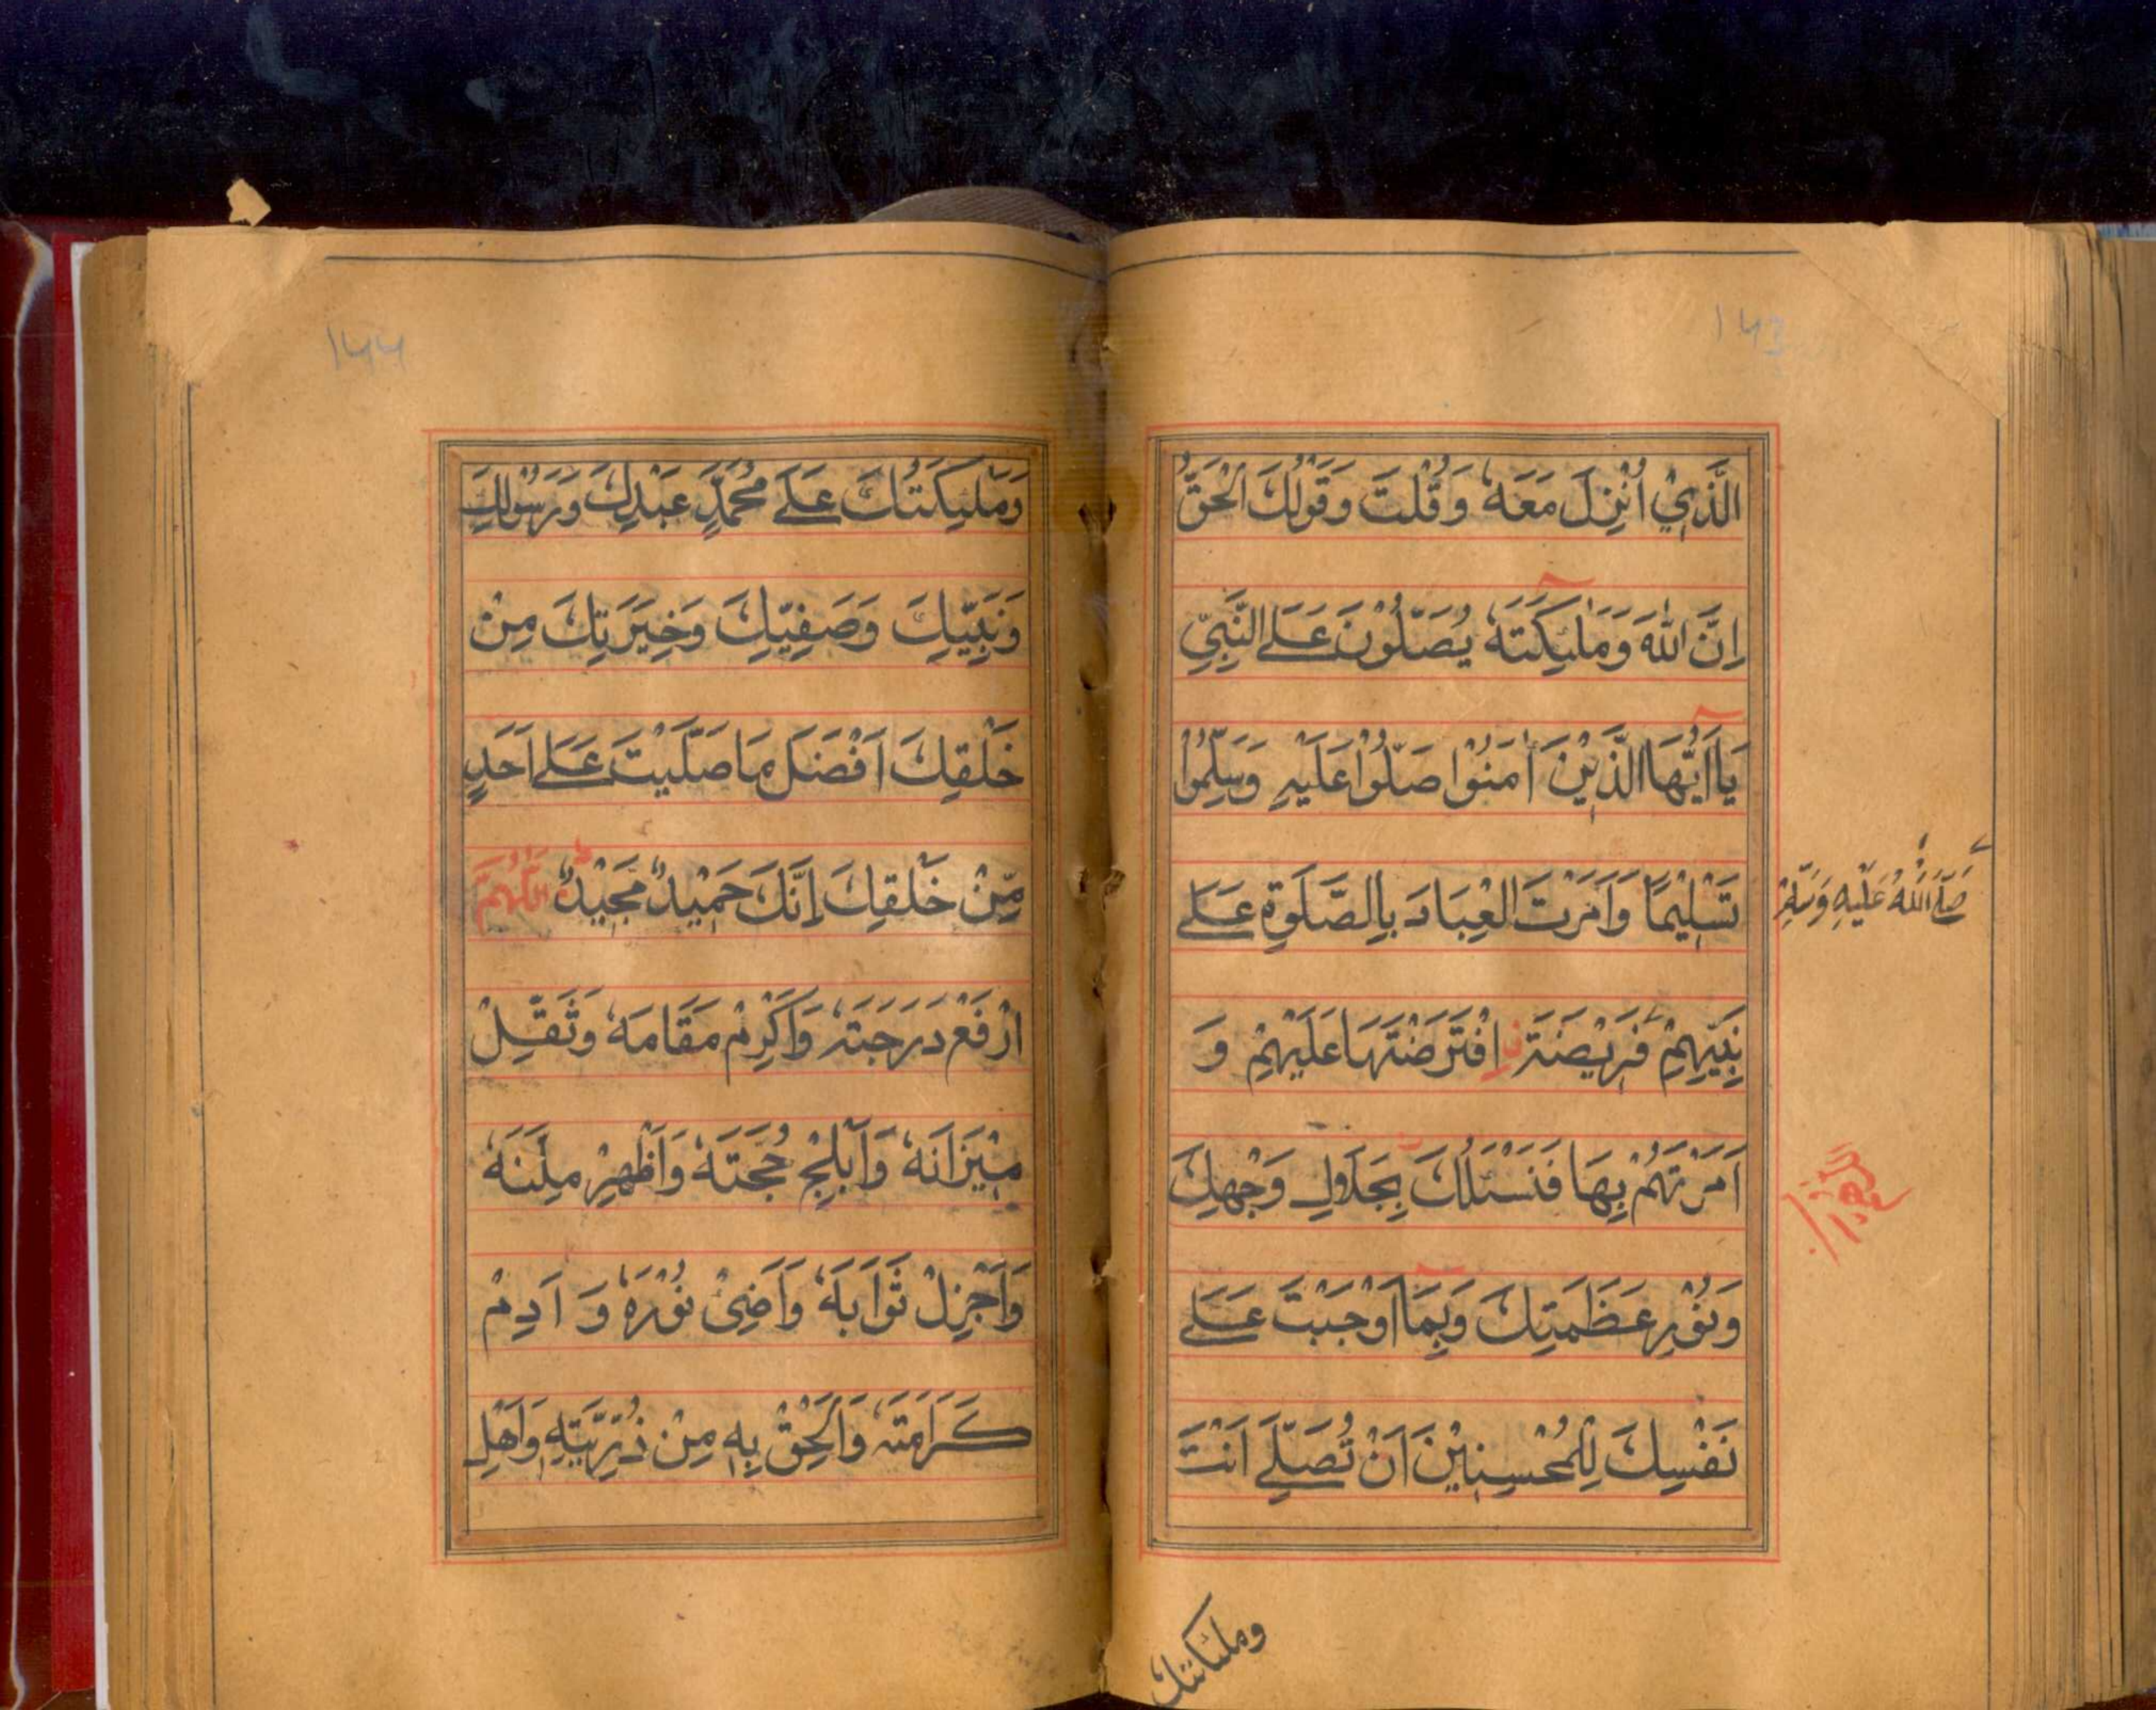 ۱۴۳
الَّذِيْ اُنْزِلَ مَعَهٗ وَقُلْتَ وَقَوْلُكَ الْحَقُّ
اِنَّ اللّٰهَ وَمَلٰٓئِكَتَهٗ يُصَلُّوْنَ عَلَى النَّبِيِّ
يَآاَيُّهَا الَّذِيْنَ اٰمَنُوْا صَلُّوْا عَلَيْهِ وَسَلِّمُوْا
تَسْلِيْمًا وَاَمَرْتَ الْعِبَادَ بِالصَّلٰوةِ عَلٰى
صَلَّى اللّٰهُ عَلَيْهِ وَسَلَّمَ
نَبِيِّهِمْ فَرِيْضَةَ نِ افْتَرَضْتَهَا عَلَيْهِمْ وَ
اَمَرْتَهُمْ بِهَا فَنَسْئَلُكَ بِجَلَالِ وَجْهِكَ
وَنُوْرِ عَظَمَتِكَ وَبِمَآ اَوْجَبْتَ عَلٰى
نَفْسِكَ لِلْمُحْسِنِيْنَ اَنْ تُصَلِّيَ اَنْتَ
وملئكتك
۱۴۴
وَمَلٰئِكَتُكَ عَلٰى مُحَمَّدٍ عَبْدِكَ وَرَسُوْلِكَ
وَنَبِيِّكَ وَصَفِيِّكَ وَخِيَرَتِكَ مِنْ
خَلْقِكَ اَفْضَلَ مَا صَلَّيْتَ عَلٰى اَحَدٍ
مِّنْ خَلْقِكَ اِنَّكَ حَمِيْدٌ مَّجِيْدٌ اَللّٰهُمَّ
ارْفَعْ دَرَجَتَهٗ وَاَكْرِمْ مَقَامَهٗ وَثَقِّلْ
مِيْزَانَهٗ وَاَبْلِجْ حُجَّتَهٗ وَاَظْهِرْ مِلَّتَهٗ
وَاَجْزِلْ ثَوَابَهٗ وَاَضِئْ نُوْرَهٗ وَ اَدِمْ
كَرَامَتَهٗ وَاَلْحِقْ بِهٖ مِنْ ذُرِّيَّتِهٖ وَاَهْلِ